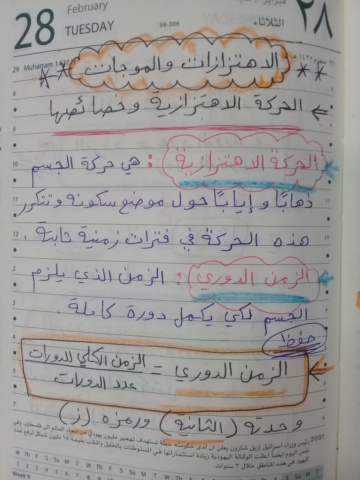 28
February
TUESDAY
59-306
الثلاثاء
٢٨
29 Muharram 1427
** الاهتزازات والموجات **
⇐ الحركة الاهتزازية وخصائصها
الحركة الاهتزازية : هي حركة الجسم
ذهابًا وإيابًا حول موضع سكونه وتتكرر
هذه الحركة في فترات زمنية ثابتة .
الزمن الدوري : الزمن الذي يلزم
الجسم لكي يكمل دورة كاملة .
حفظ
الزمن الدوري = الزمن الكلي للدورات
عدد الدورات
وحدته (الثانية) ورمزه (ز)
Week 9